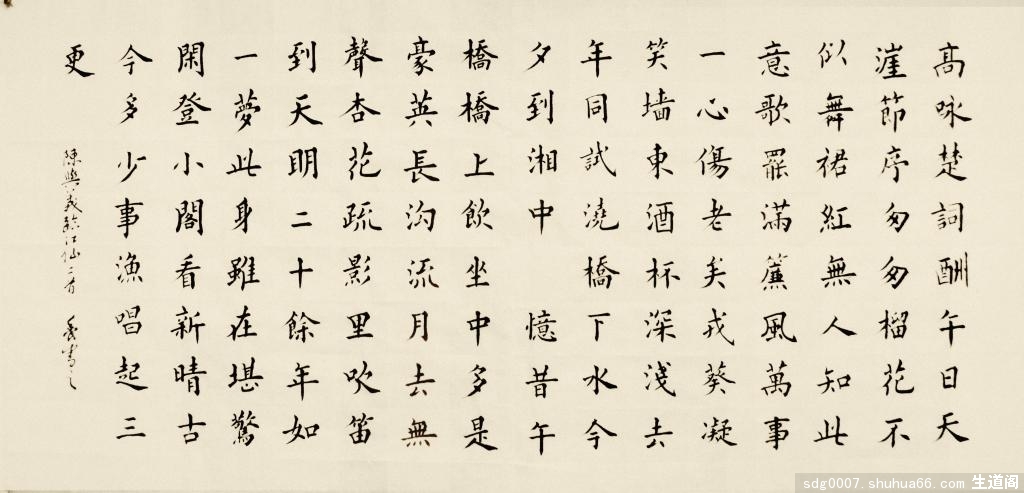 高咏楚詞酬午日天
漄節序匆匆榴花不
似舞裙紅無人知此
意歌罷滿簾風萬事
一心傷老矣戎葵凝
笑墙東酒杯深淺去
年同試澆橋下水今
夕到湘中 憶昔午
橋橋上飲坐中多是
豪英長沟流月去無
聲杏花疏影里吹笛
到天明二十餘年如
一夢此身雖在堪驚
閑登小閣看新晴古
今多少事漁唱起三
更
陳與義臨江仙二首 書之
sdg0007.shuhua66.com 生道阁